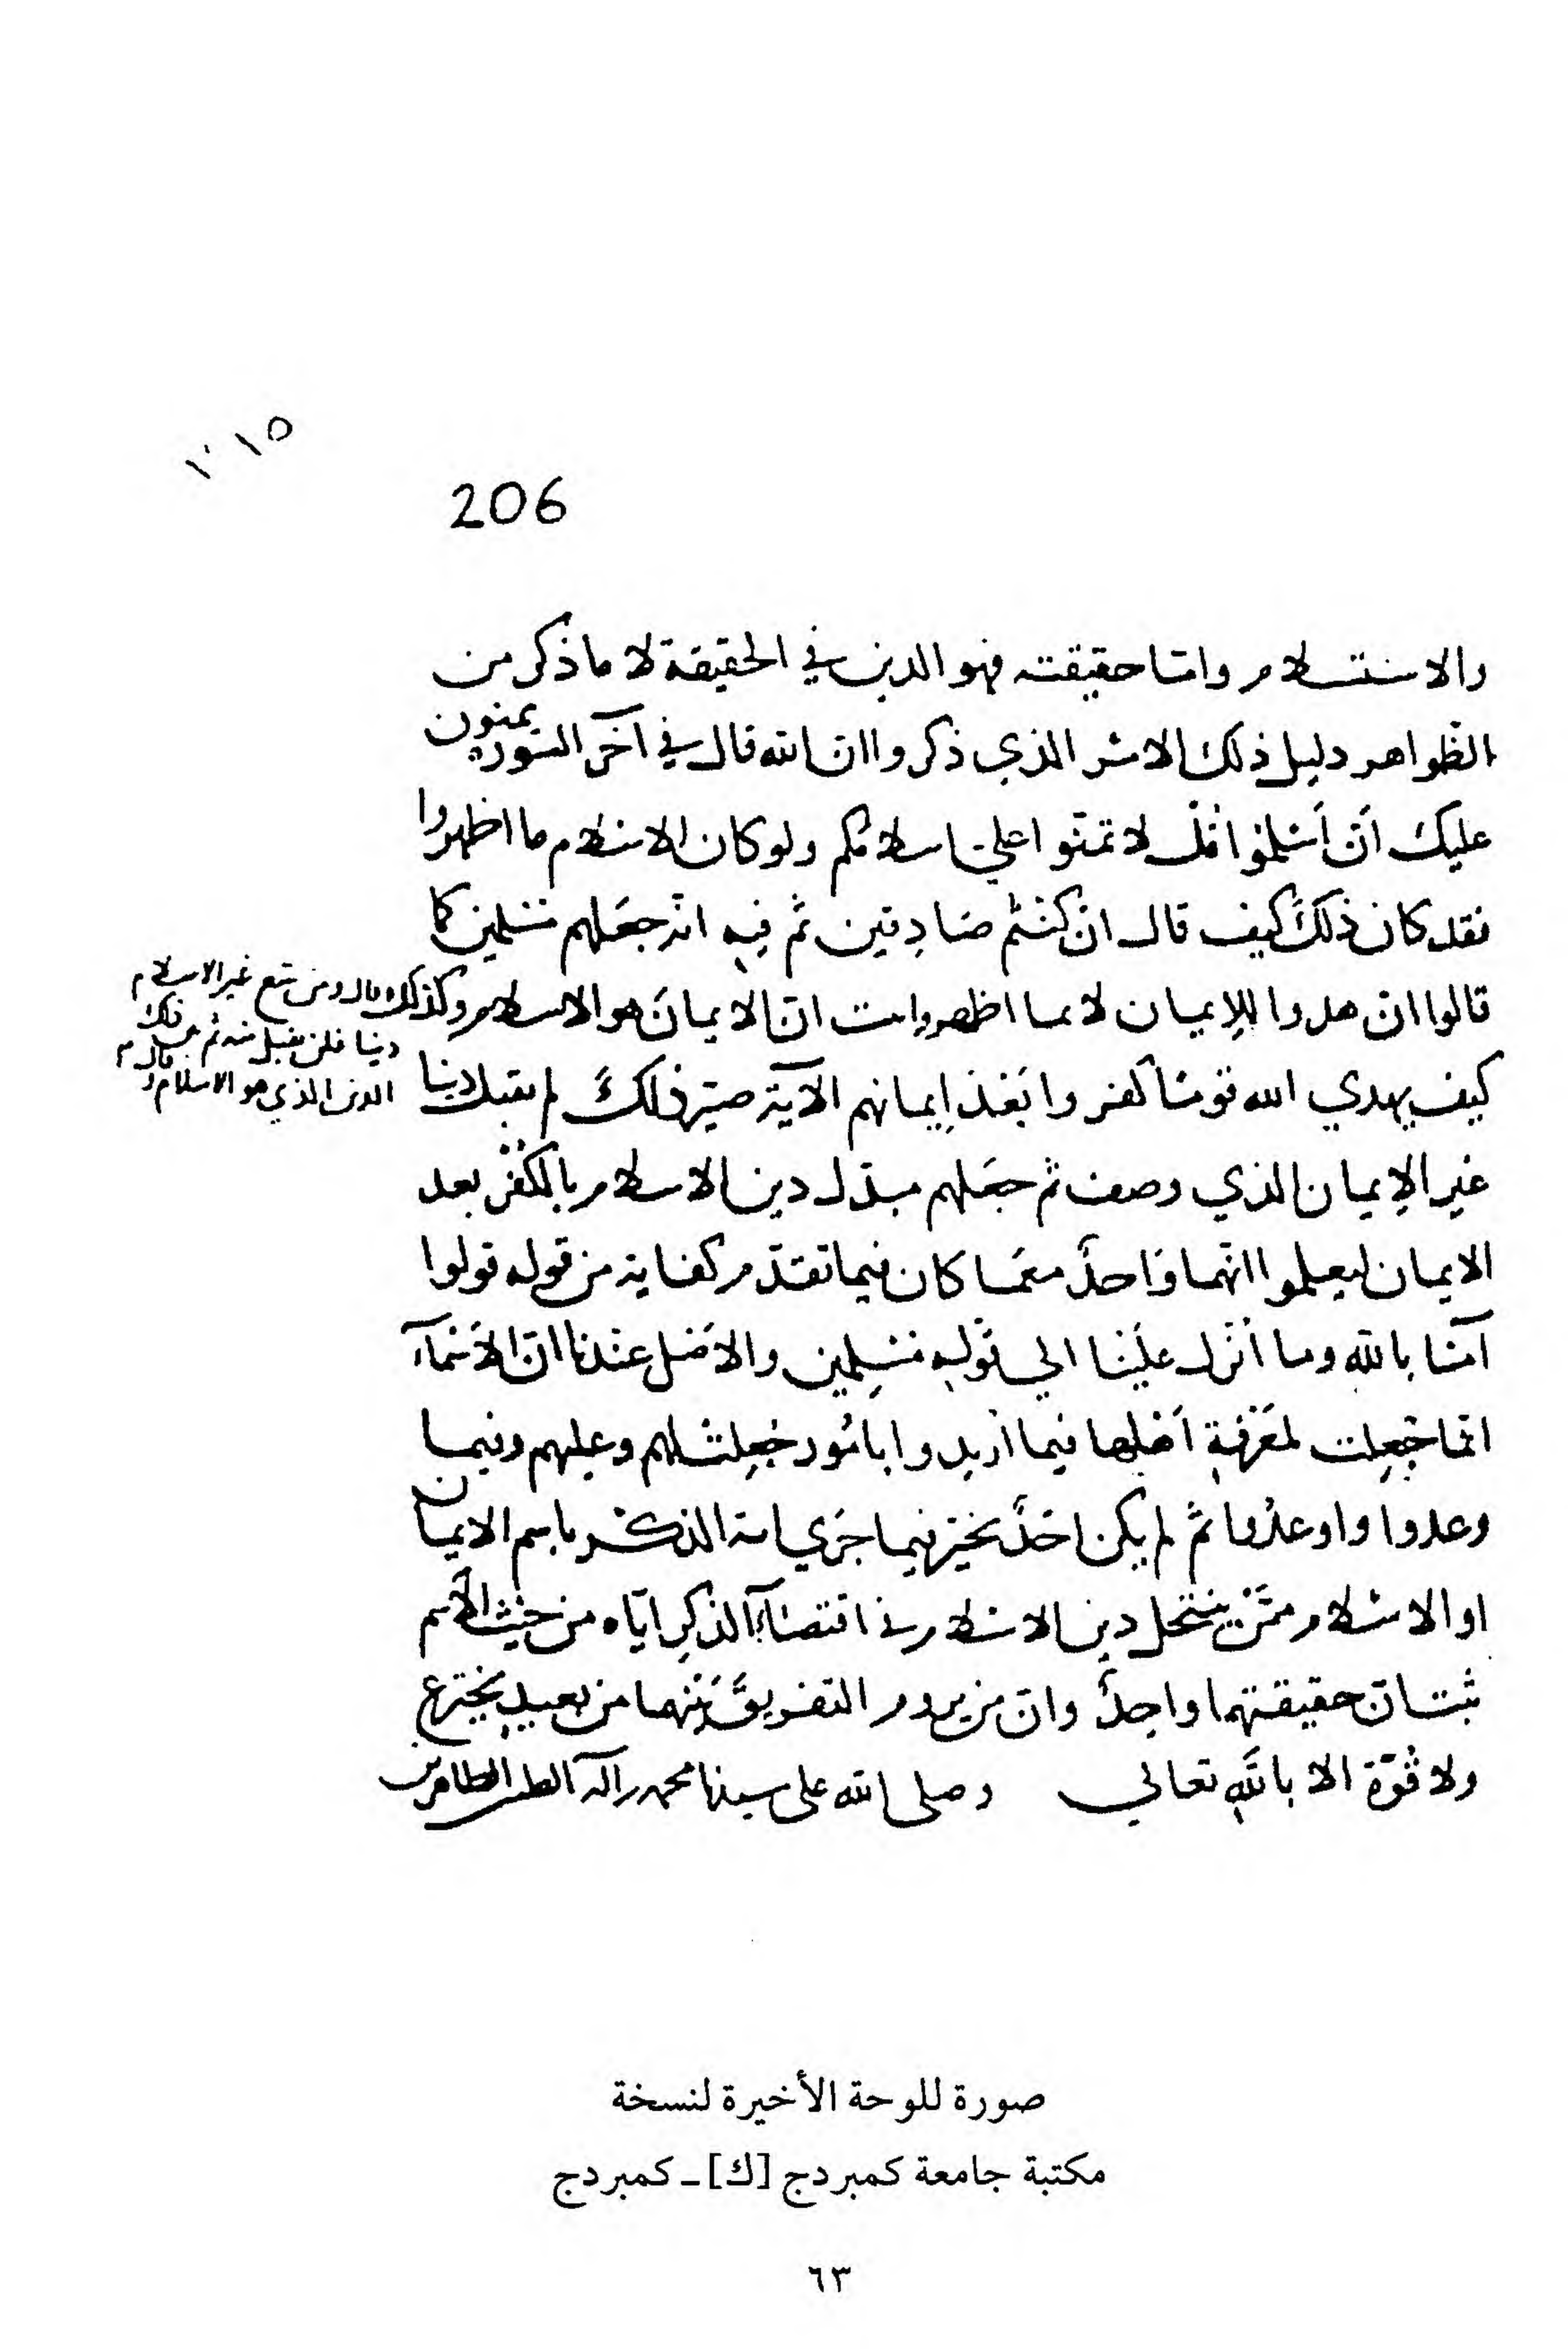 206
والاستسلام واما حقيقته فهو الدين في الحقيقة لا ما ذكر من
الظواهر دليل ذلك الامر الذي ذكروا ان الله قال في آخر السورة يمنون
عليك أن أسلموا قل لا تمنوا علي اسلامكم ولو كان الاسلام ما اظهروا
فقد كان ذلك كيف قال ان كنتم صادقين ثم فيه انه جعلهم مسلمين كما
قالوا ان هدوا للإيمان لا بما اظهروا ثبت ان الايمان هو الاسلام وكذلك قال ومن يبتغ غير الاسلام
دينا فلن يقبل منه ثم
الدين الذي هو الاسلام
كيف يهدي الله قوما كفروا بعد إيمانهم الآية صير ذلك لم يقبل دينا
غير الإيمان الذي وصف ثم جعلهم مبدل دين الاسلام بالكفر بعد
الايمان ليعلموا انهما واحد مع ما كان فيما تقدم كفاية من قوله قولوا
آمنا بالله وما أنزل علينا الي قوله مسلمين والاصل عندنا ان الأسماء
انما جعلت لمعرفة أهلها فيما أريدوا بامور جعلت لهم وعليهم وفيما
وعدوا واوعدوا ثم لم يكن احد يخير فيما جري به الذكر باسم الايمان
او الاسلام ممن ينتحل دين الاسلام في اقتضاء الذكر اياه من حيث الأسم
ثبت ان حقيقتهما واحد وان من يروم التفريق بينهما من بعيد يخترع
ولا قوة الا بالله تعالي وصلى الله على سيدنا محمد وآله الطاهرين
صورة للوحة الأخيرة لنسخة
مكتبة جامعة كمبردج [ك] ـ كمبردج
٦٣